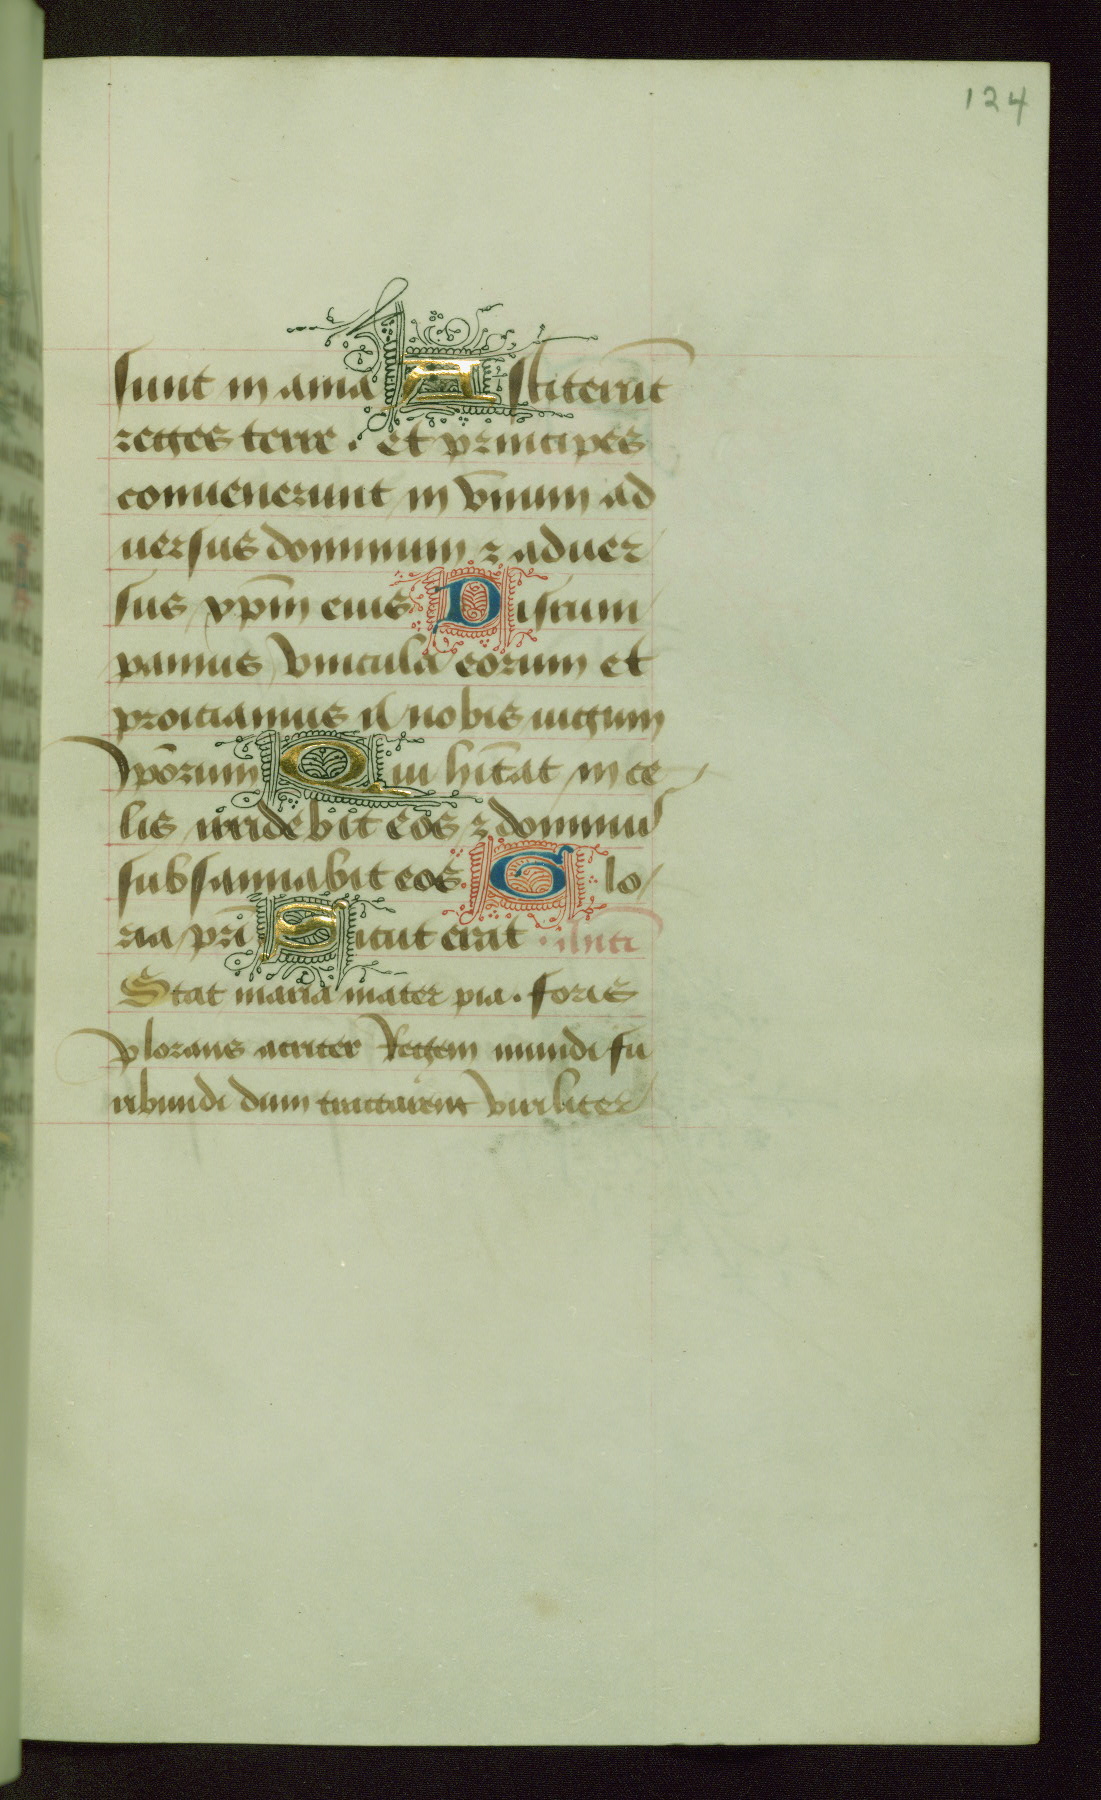 124
sunt in ania Astiterūt
reges terre . et principes
conuenerunt in vnum ad
uersus dominum ⁊ aduer
sus xpm̄ eius Disrum
pamus vincula eorum et
proiciamus a nobis iugum
ip̄orum Qui hītat in ce
lis irridebit eos ⁊ dominus
subsannabit eos. Glo
ria pr̄i Sicut erat .
Stat maria mater pia . foris
plorans acriter Regem mundi fu
ribundi dum tractarent viriliter